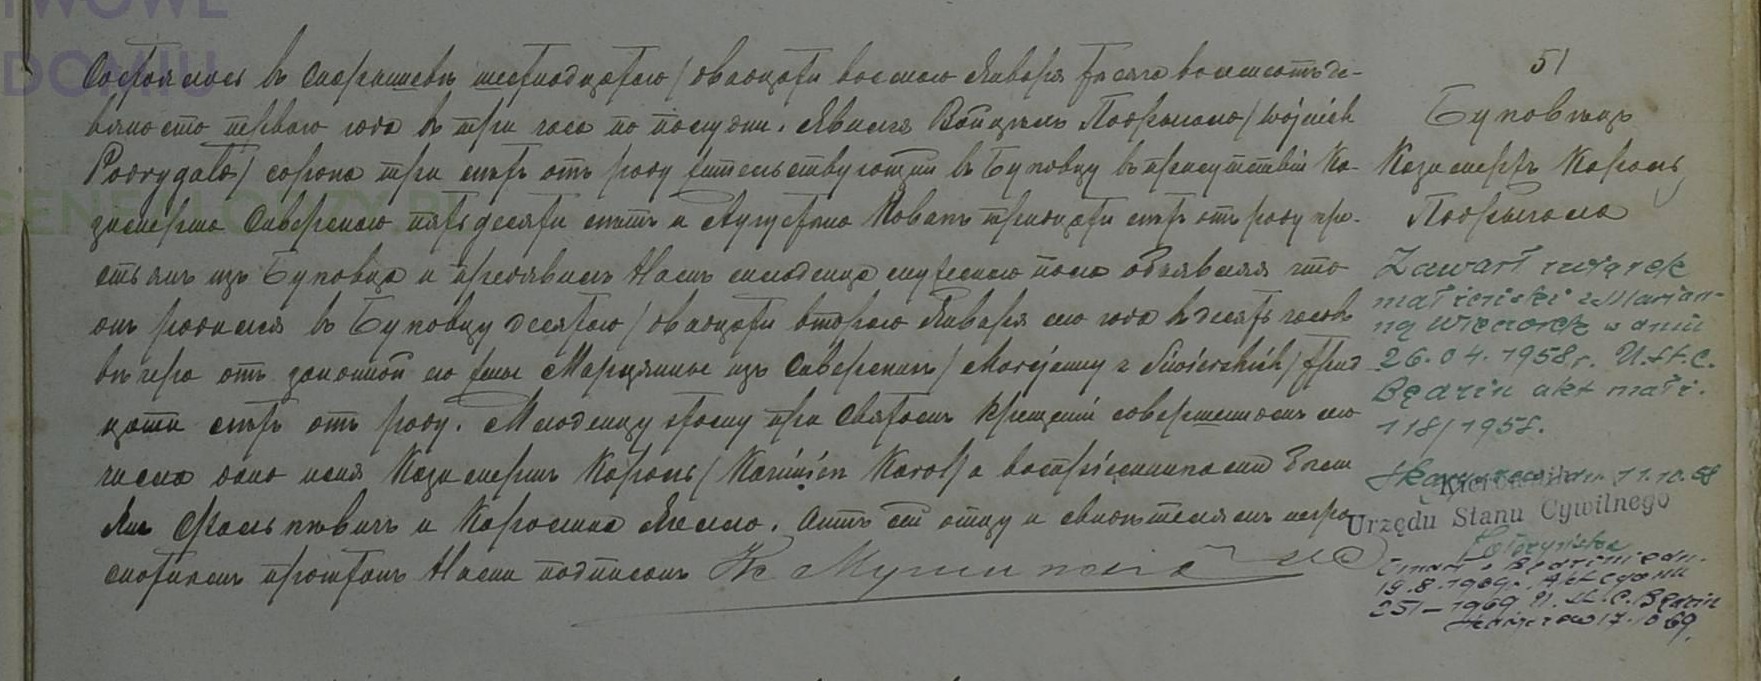 51
Буковецъ
Казимержъ Кароль
Подрыгало
Состоялось въ Скарышевѣ шестнадцатаго / двадцати восьмаго Января тысяча восемьсотъ де-
вяносто перваго года въ три часа по полудни. Явился Войцѣхъ Подрыгало / Wojciech
Podrygało / сорока три лѣтъ отъ роду жительствующій въ Буковцу въ присутствіи Ка-
зимержа Сиверскаго пятьдесяти лѣтъ и Августына Новакъ тридцати лѣтъ отъ роду кре-
стьянъ изъ Буковца и предявилъ Намъ младенца мужескаго пола объявляя что
онъ родился въ Буковцу десятаго / двадцати втораго Января сего года въ десять часовъ
вечера отъ законной его жены Марцянны изъ Сиверскихъ / Marcjanny z Siwierskich / трид
цати лѣтъ отъ роду. Младенцу этому при Святомъ Крещеніи совершенномъ сего
числа дано имя Казимержъ Кароль / Kazimierz Karol / а воспріемниками были
Янъ и Каролина. Актъ сей отцу и свидѣтелямъ негра-
мотнымъ прочтанъ Нами подписанъ
Zawarł związek
małżeński z Marian-
ną Wieczorek w dniu
26.04.1958 r. U.S.C.
Będzin akt małż.
118/1958.
11.10.58
Kierownik
Urzędu Stanu Cywilnego
Zmarł w Będzinie dn.
19.8.1969r. Akt zgonu
251-1969 U.S.C. Będzin
17.10.69.